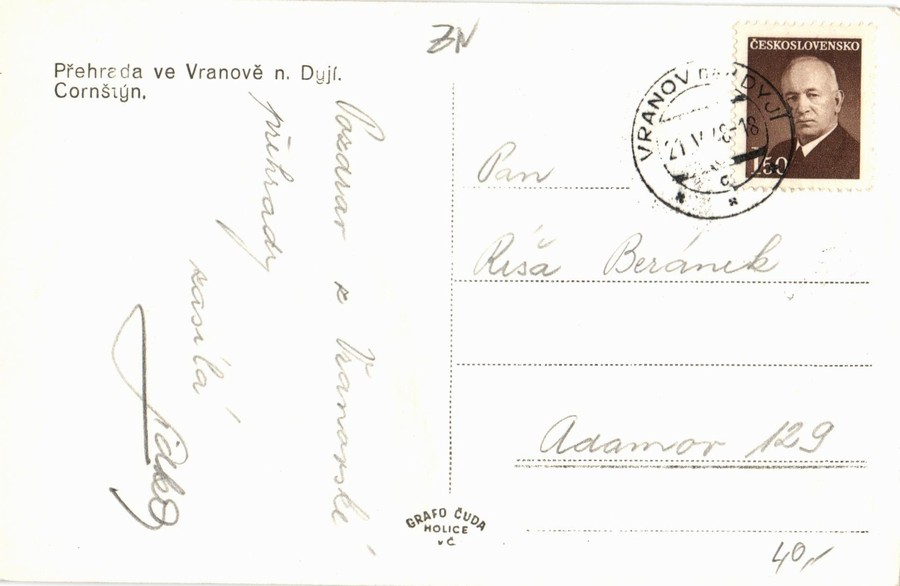 Přehrada ve Vranově n. Dyjí.
Cornštýn.
ZN
ČESKOSLOVENSKO
1.50
VRANOV NAD DYJÍ
21. V 48-18
C
Pozdrav z Vranovské
přehrady
zasílá
Pan
Ríša Beránek
Adamov 129
GRAFO ČUDA
HOLICE
v Č
40,-